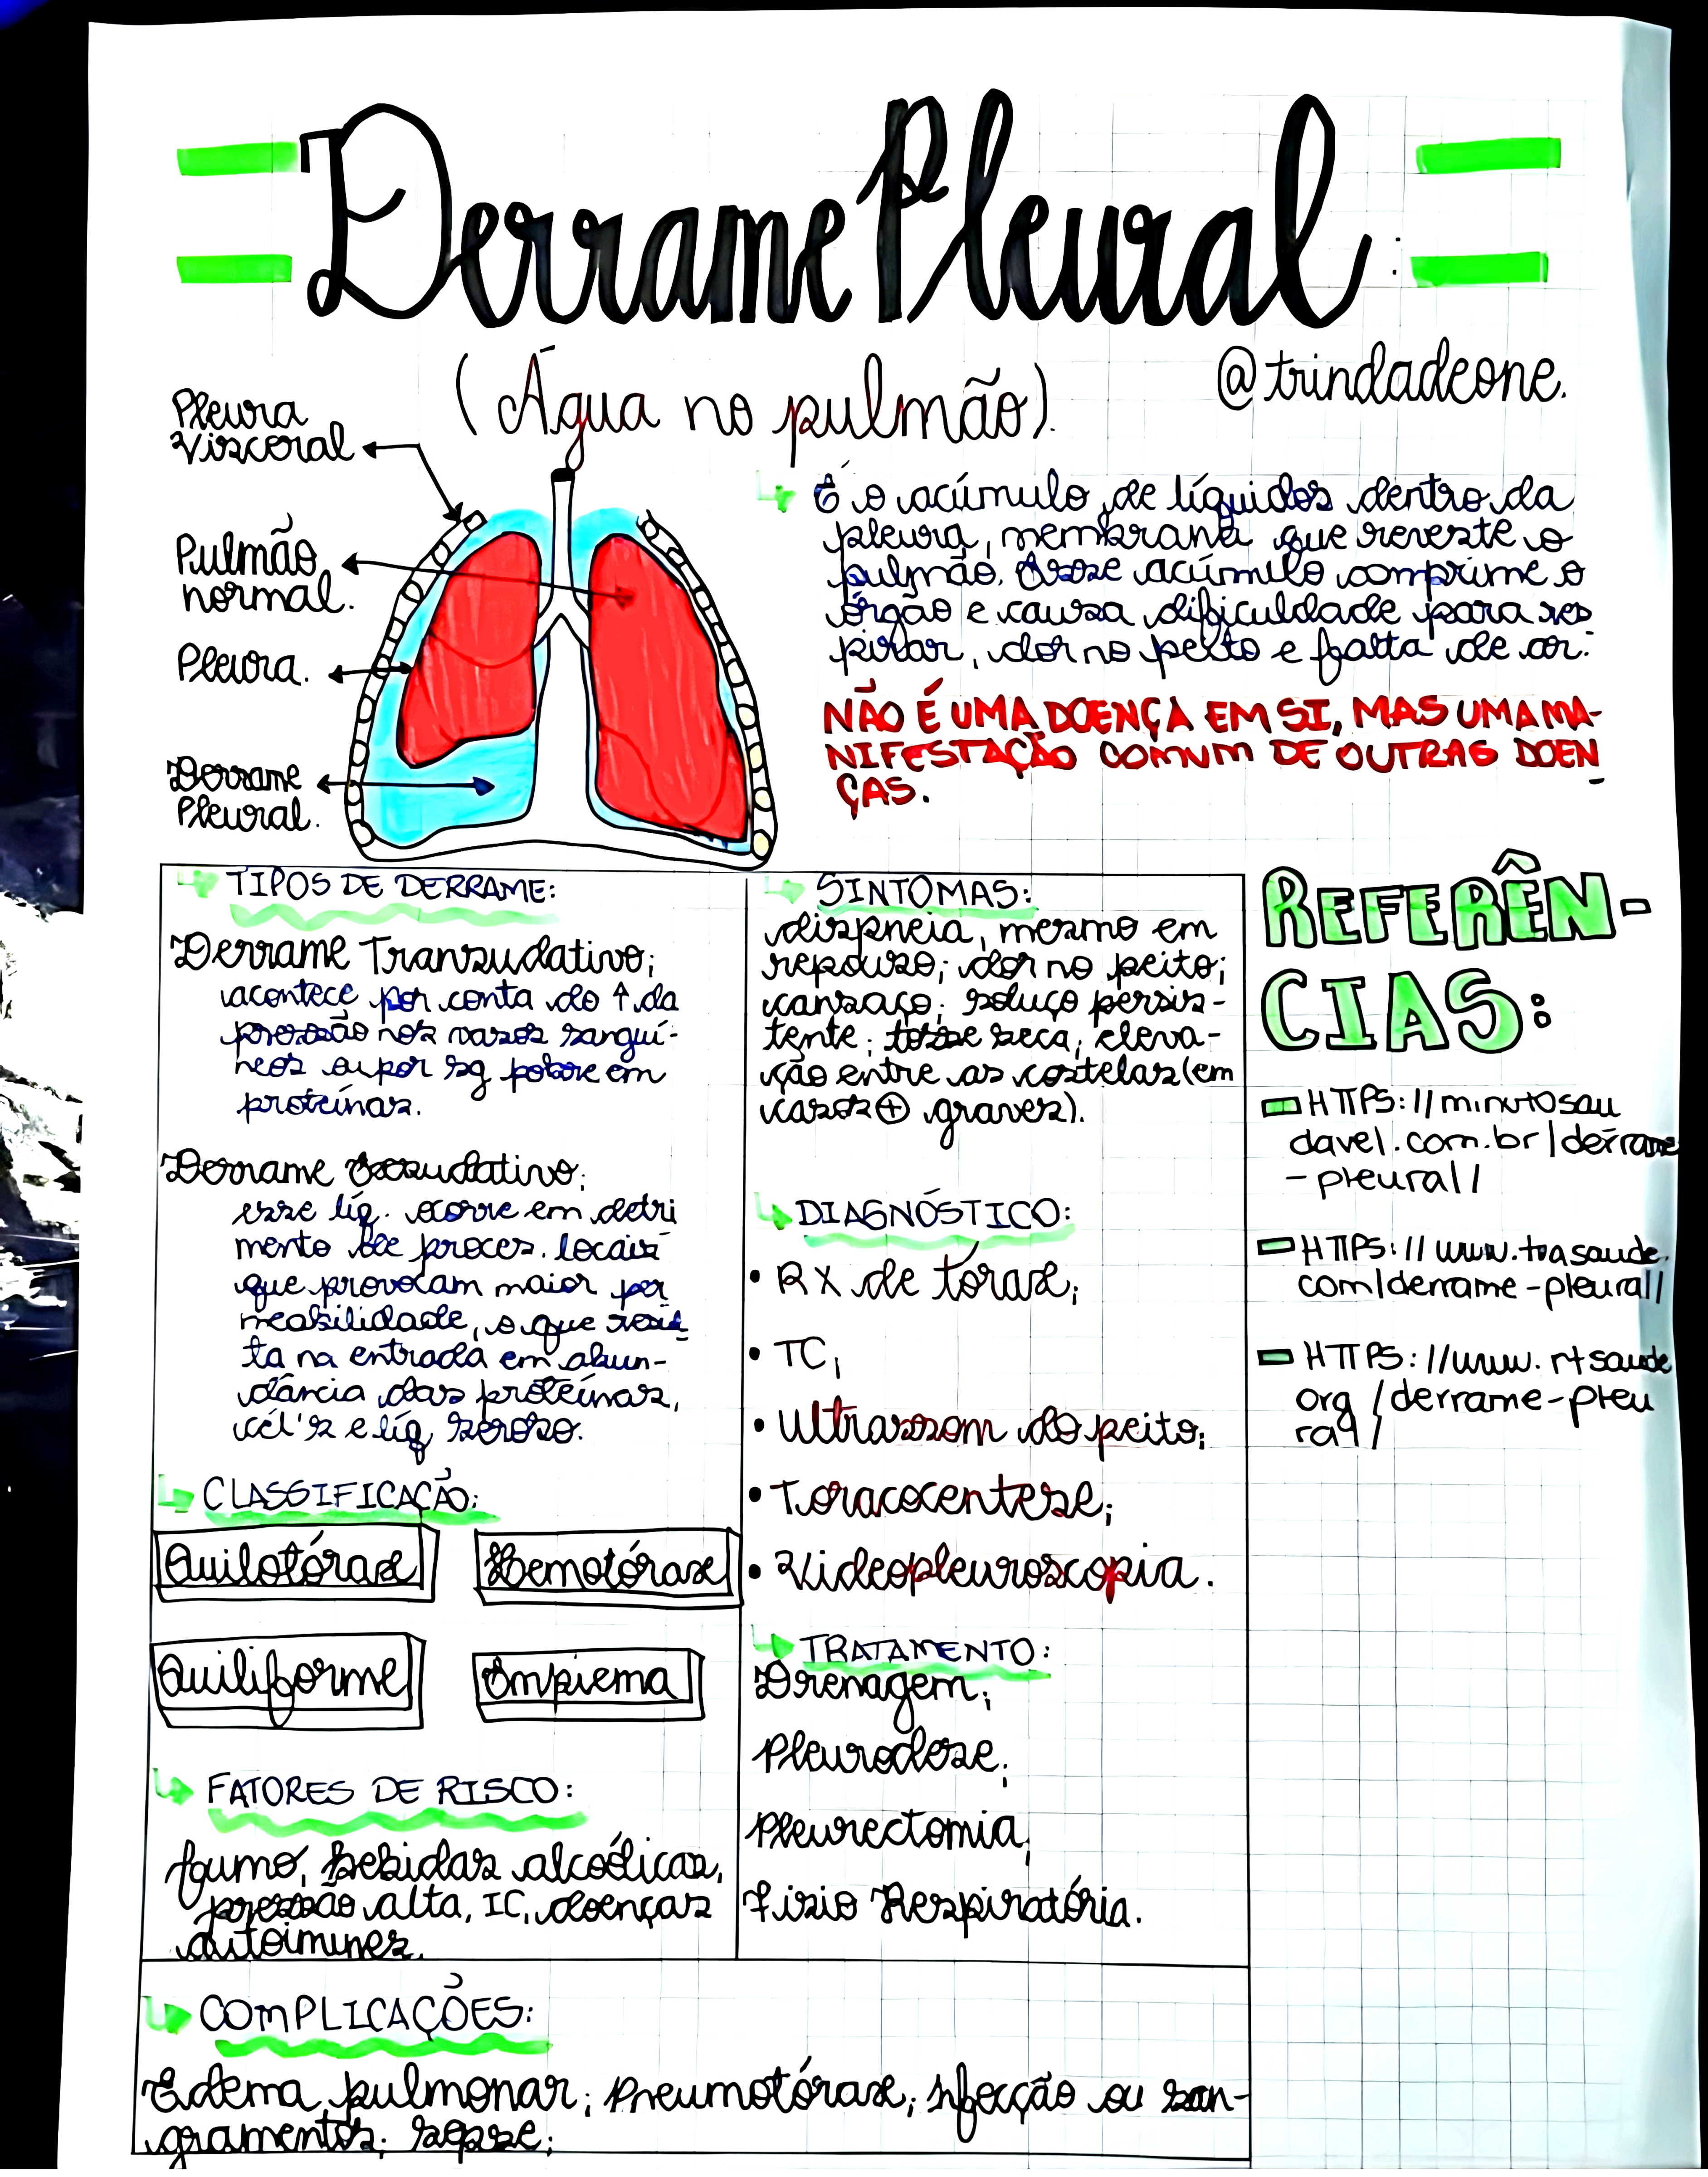 Derrame Pleural:
(Água no pulmão).
@trindadeone.
Pleura
Visceral
Pulmão
normal.
Pleura.
Derrame
Pleural.
É o acúmulo de líquidos dentro da
pleura, membrana que reveste o
pulmão. Esse acúmulo comprime o
órgão e causa dificuldade para res
pirar, dor no peito e falta de ar.
NÃO É UMA DOENÇA EM SI, MAS UMA MA-
NIFESTAÇÃO COMUM DE OUTRAS DOEN
ÇAS.
TIPOS DE DERRAME:
Derrame Transudativo;
acontece por conta do ↑ da
pressão nos vasos sanguí-
neos ou por sg pobre em
proteínas.
Derrame Exsudativo:
esse líq. ocorre em detri
mento de proces. locais
que provocam maior per
meabilidade, o que resul
ta na entrada em abun-
dância das proteínas,
cél's e líq seroso.
CLASSIFICAÇÃO:
Quilotórax
Hemotórax
Quiliforme
Empiema
FATORES DE RISCO:
fumo, bebidas alcoólicas,
pressão alta, IC, doenças
autoimunes.
SINTOMAS:
dispneia, mesmo em
repouso; dor no peito;
cansaço; soluço persis-
tente; tosse seca; eleva-
ção entre as costelas (em
casos ⊕ graves).
DIAGNÓSTICO:
• RX de tórax;
• TC;
• Ultrassom do peito;
• Toracocentese;
• Videopleuroscopia.
TRATAMENTO:
Drenagem;
Pleurodese;
Pleurectomia;
Fisio Respiratória.
COMPLICAÇÕES:
Edema pulmonar; Pneumotórax; Infecção ou san-
gramentos; sepse;
REFERÊN-
CIAS:
HTTPS://minutosau
davel.com.br/derrame
-pleural/
HTTPS://www.tuasaude.
com/derrame-pleural/
HTTPS://www.rtsaude
org/derrame-pleu
ral/